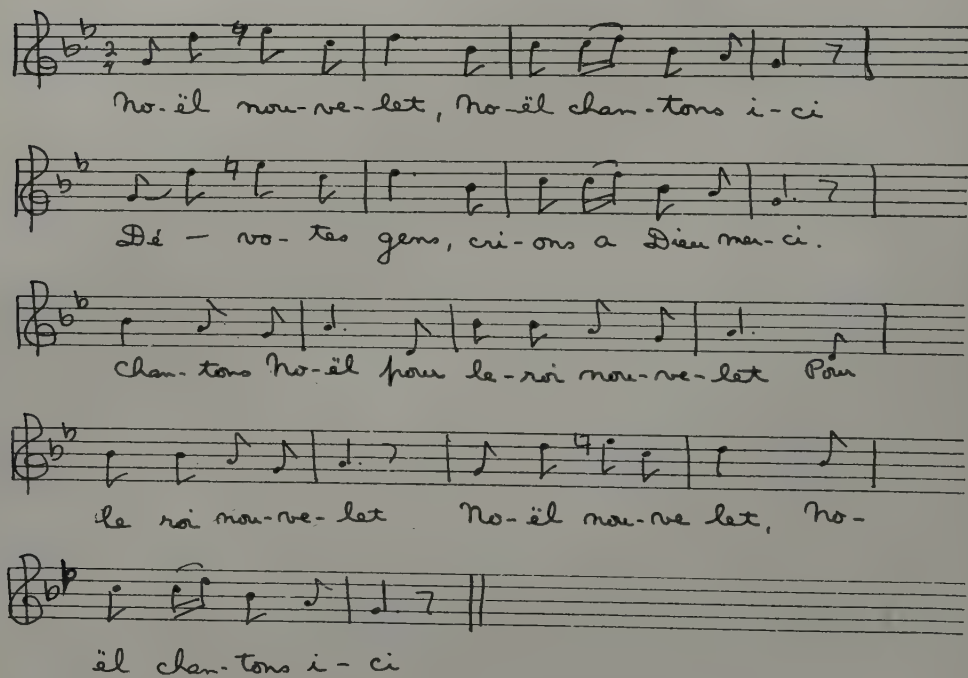 2
4
No-ël nou-ve-let, No-ël chan-tons i-ci
Dé - vo-tes gens, cri-ons a Dieu mer-ci.
Chan-tons No-ël pour le-roi nou-ve-let Pour
le roi nou-ve-let No-ël nou-ve let, No-
ël chan-tons i-ci